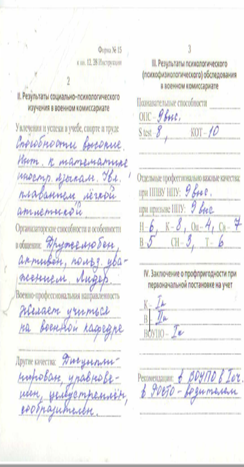 Форма № 15
к пп. 12, 28 Инструкции
2
II. Результаты социально-психологического
изучения в военном комиссариате
Увлечения и успехи в учебе, спорте и труде
Способности высокие.
Инт. к математике
иностр. языкам. Увл.
плаванием лёгкой
атлетикой
Организаторские способности и особенности
в общении: Дружелюбен,
активен, польз. ува-
жением. Лидер
Военно-профессиональная направленность
Желает учиться
на военной кафедре
Другие качества: Дисципли-
нирован, уравнове-
шен, целеустремлён,
сообразителен.
3
III. Результаты психологического
(психофизиологического) обследования
в военном комиссариате
Познавательные способности
ОПС - 9 выс.
S test 8, КОТ - 10
Отдельные профессионально важные качества:
при ППВУ НПУ: 9 выс.
при призыве НПУ: 9 выс
Н: 6, К - 8, Оп - 4, Са - 7
В 5 СН - 3, Т - 6
IV. Заключение о профпригодности при
первоначальной постановке на учет
К - Iк
В IIк
ВОУПО - Iк
Рекомендации: в ВОУПО в I оч.
в РОСТО - водителем